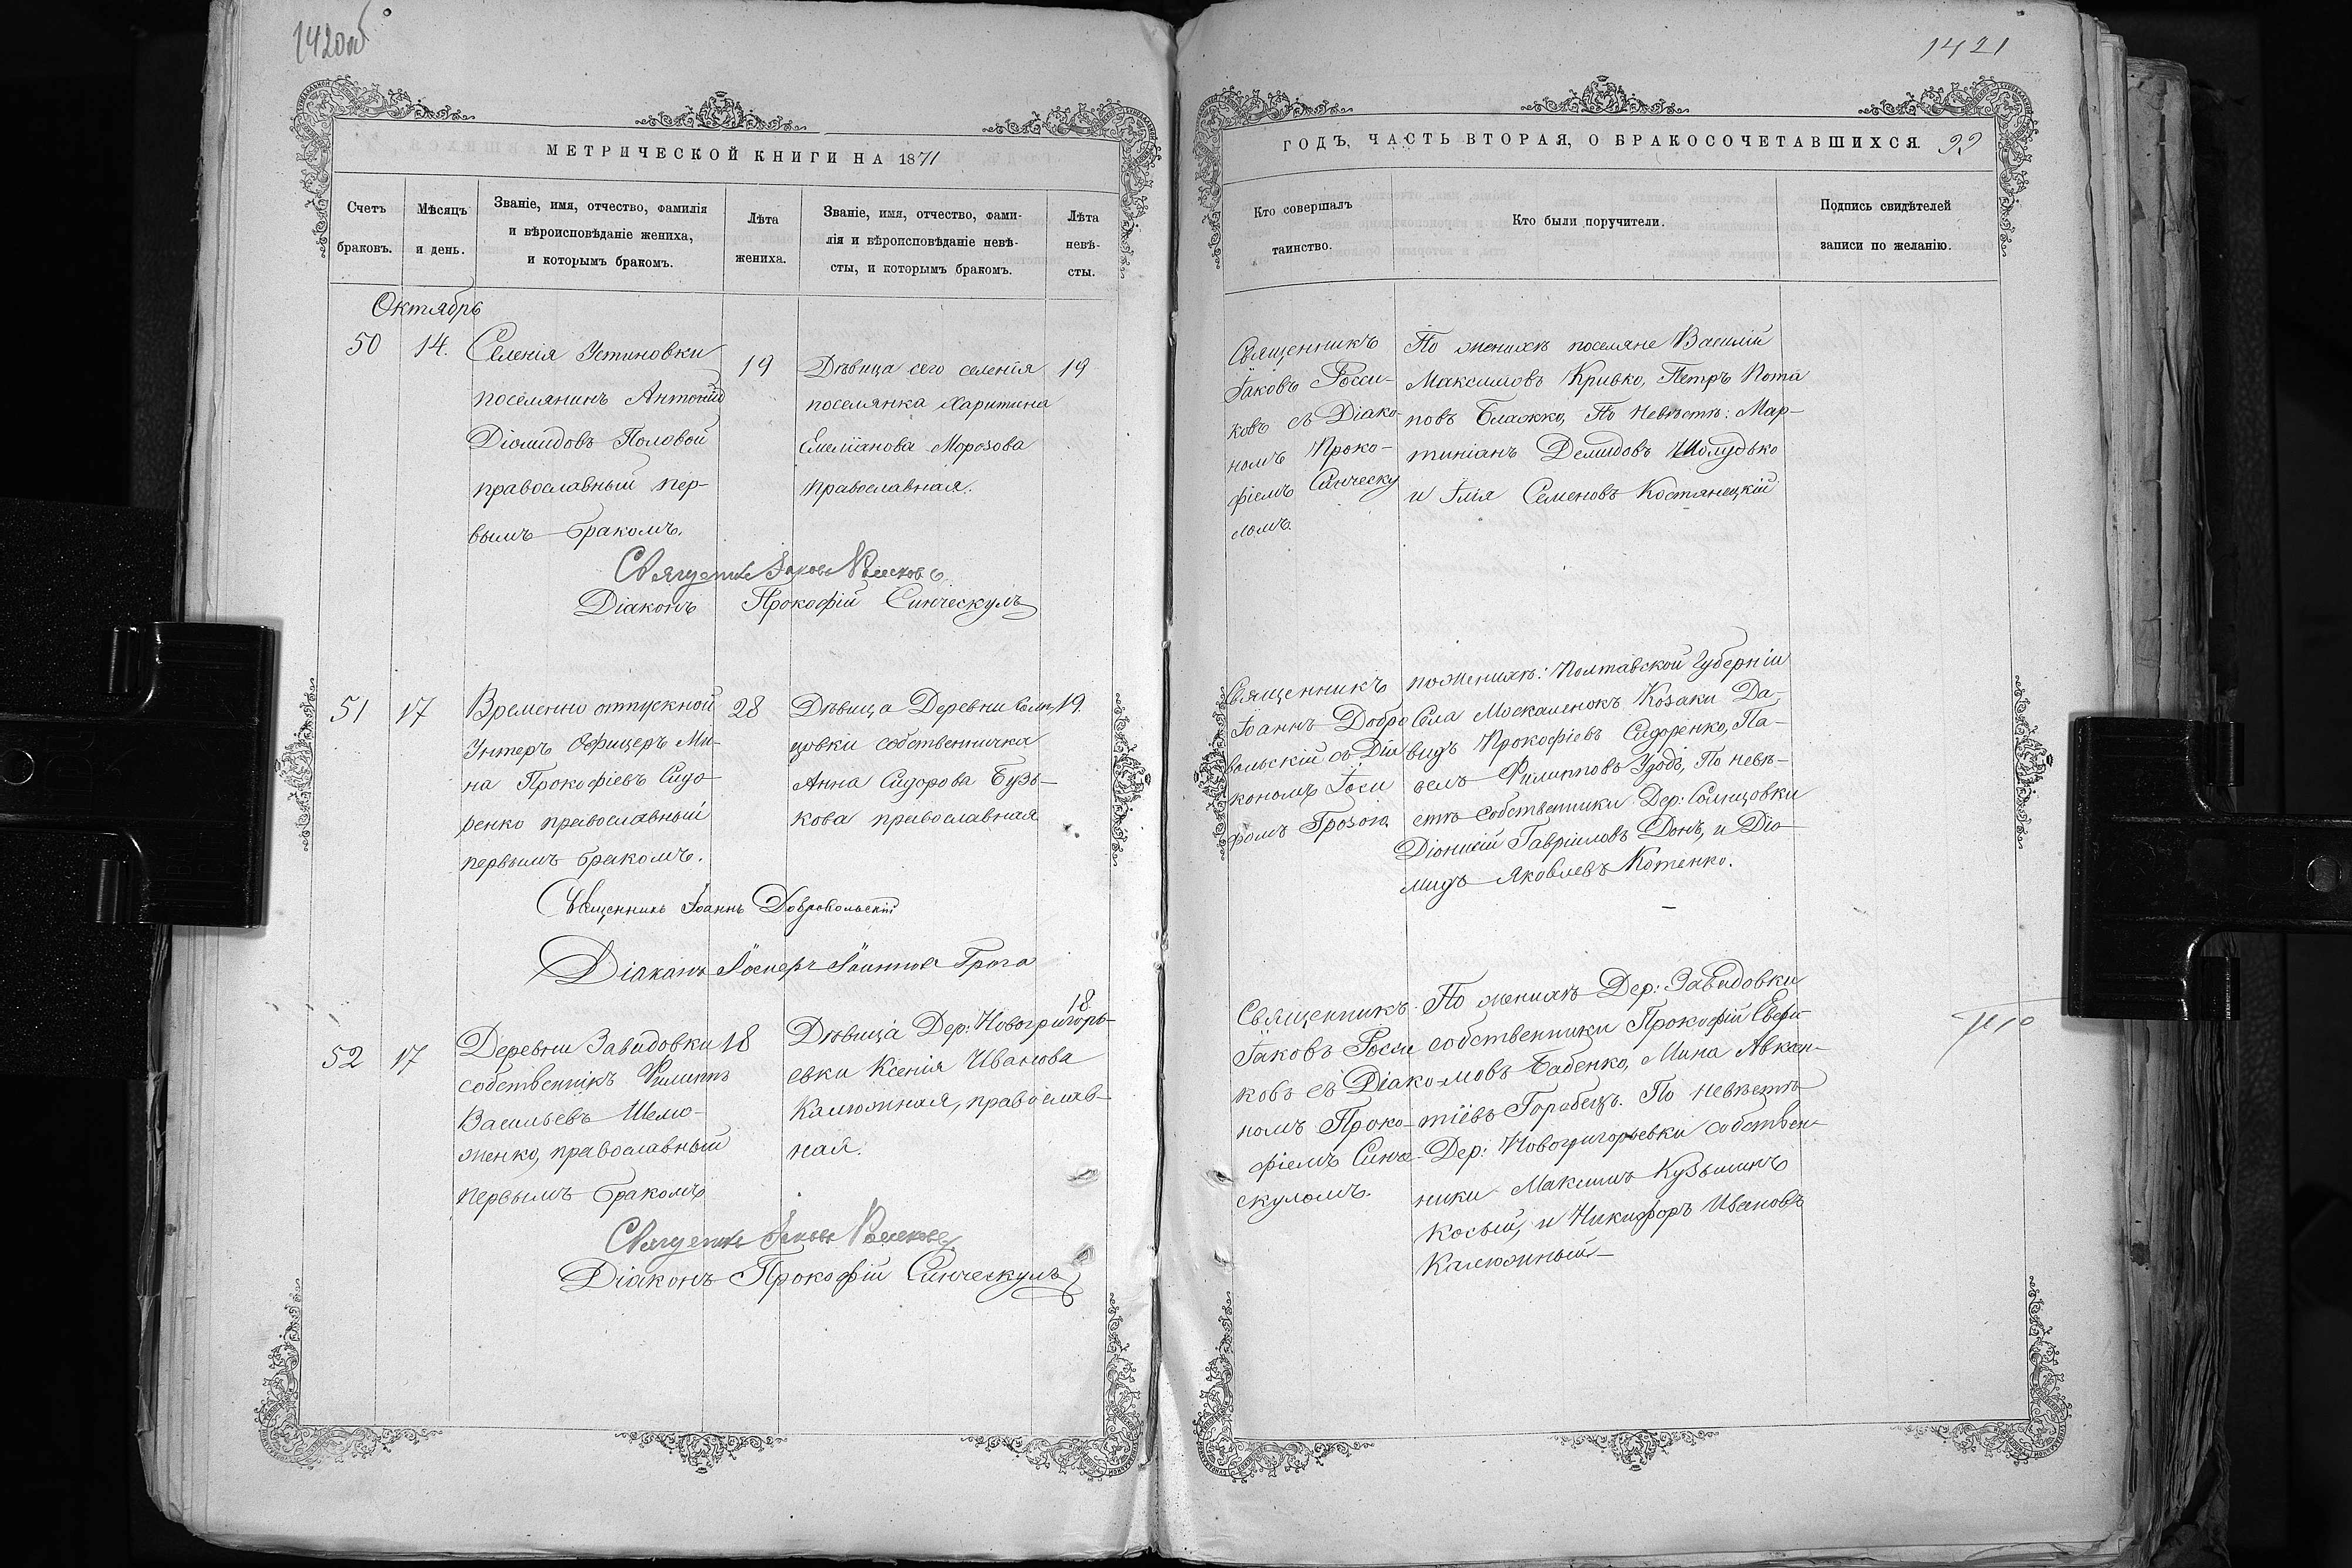 1420об
МЕТРИЧЕСКОЙ КНИГИ НА 1871
Счетъ браковъ.
Мѣсяцъ и день.
Званіе, имя, отчество, фамилія
и вѣроисповѣданіе жениха,
и которымъ бракомъ.
Лѣта
жениха.
Званіе, имя, отчество, фами-
лія и вѣроисповѣданіе невѣ-
сты, и которымъ бракомъ.
Лѣта
невѣ-
сты.
Октябрь
50
14.
Селенія Устиновки
поселянинъ Антоній
Діомидовъ Половой
православный пер-
вымъ бракомъ.
19
Дѣвица сего селенія
поселянка Харитина
Емеліанова Морозова
православная.
19
Священникъ Іаковъ
Діаконъ Прокофій Синческулъ
51
17
Временно отпускной
Унтеръ Офицеръ Ми-
на Прокофіевъ Сидо-
ренко православный
первымъ бракомъ.
28
Дѣвица Деревни Солн-
цовки собственничка
Анна Сидорова Бузь-
кова православная
19.
Священникъ Іоаннъ Добровольскій
Діаконъ
52
17
Деревни Завидовки
собственникъ Филиппъ
Васильевъ Шелю-
женко, православный
первымъ бракомъ
18
Дѣвица Дер: Новогригорь-
евки Ксенія Иванова
Калюжная, православ-
ная.
18
Священникъ Іаковъ
Діаконъ Прокофій Синческулъ
1421
ГОДЪ, ЧАСТЬ ВТОРАЯ, О БРАКОСОЧЕТАВШИХСЯ. 99
Кто совершалъ
таинство.
Кто были поручители.
Подпись свидѣтелей
записи по желанію.
Священникъ
Іаковъ Росси-
ковъ съ Діако-
номъ Проко-
фіемъ Синческу
ломъ.
По женихѣ поселяне Василій
Максимовъ Кривко, Петръ Пота
повъ Блажко, По Невѣстѣ: Мар-
тиніанъ Демидовъ Шолудько
и Илія Семеновъ Костянецкій
Священникъ
Іоаннъ Добро
вольскій съ Діа
кономъ Іоси
фомъ Грозога
по женихѣ: Полтавской Губерніи
Села Москаленокъ Козаки Да-
видъ Прокофіевъ Сидоренко, Па-
велъ Филипповъ Удодъ, По невѣ-
стѣ собственники Дер: Солнцовки
Діонисій Гавріиловъ Донъ, и Діо-
мидъ Яковлевъ Котенко.
Священникъ
Іаковъ Росси
ковъ съ Діако-
номъ Проко-
фіемъ Синче-
скуломъ.
По женихѣ Дер: Завидовки
собственники Прокофій Ефи-
мовъ Бабенко, Мина Авксен-
тіевъ Горобецъ. По невѣстѣ
Дер: Новогригорьевки собствен-
ники Максимъ Кузьминъ
Косый, и Никифоръ Ивановъ
Калюжный